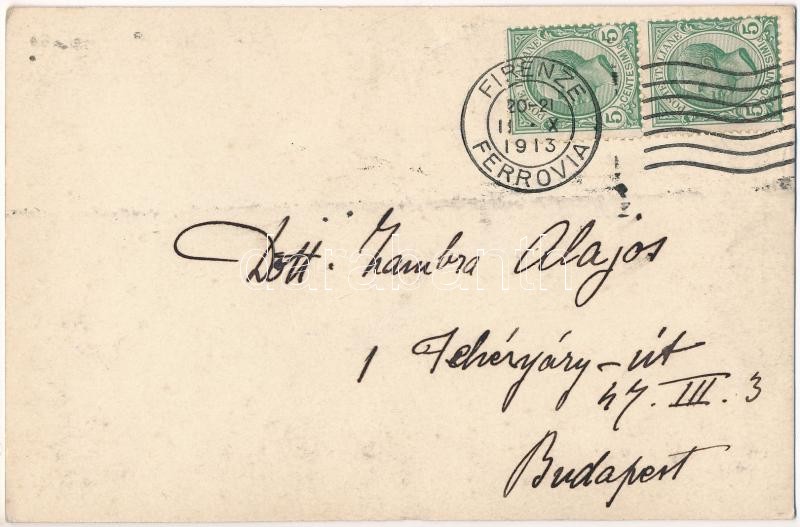 POSTE ITALIANE CENTESIMI 5 5
POSTE ITALIANE CENTESIMI 5 5
FIRENZE
20-21
11 · X
1913
FERROVIA
darabanth
Dott. Zambra Alajos
1 Fehérváry-út
47. III. 3
Budapest